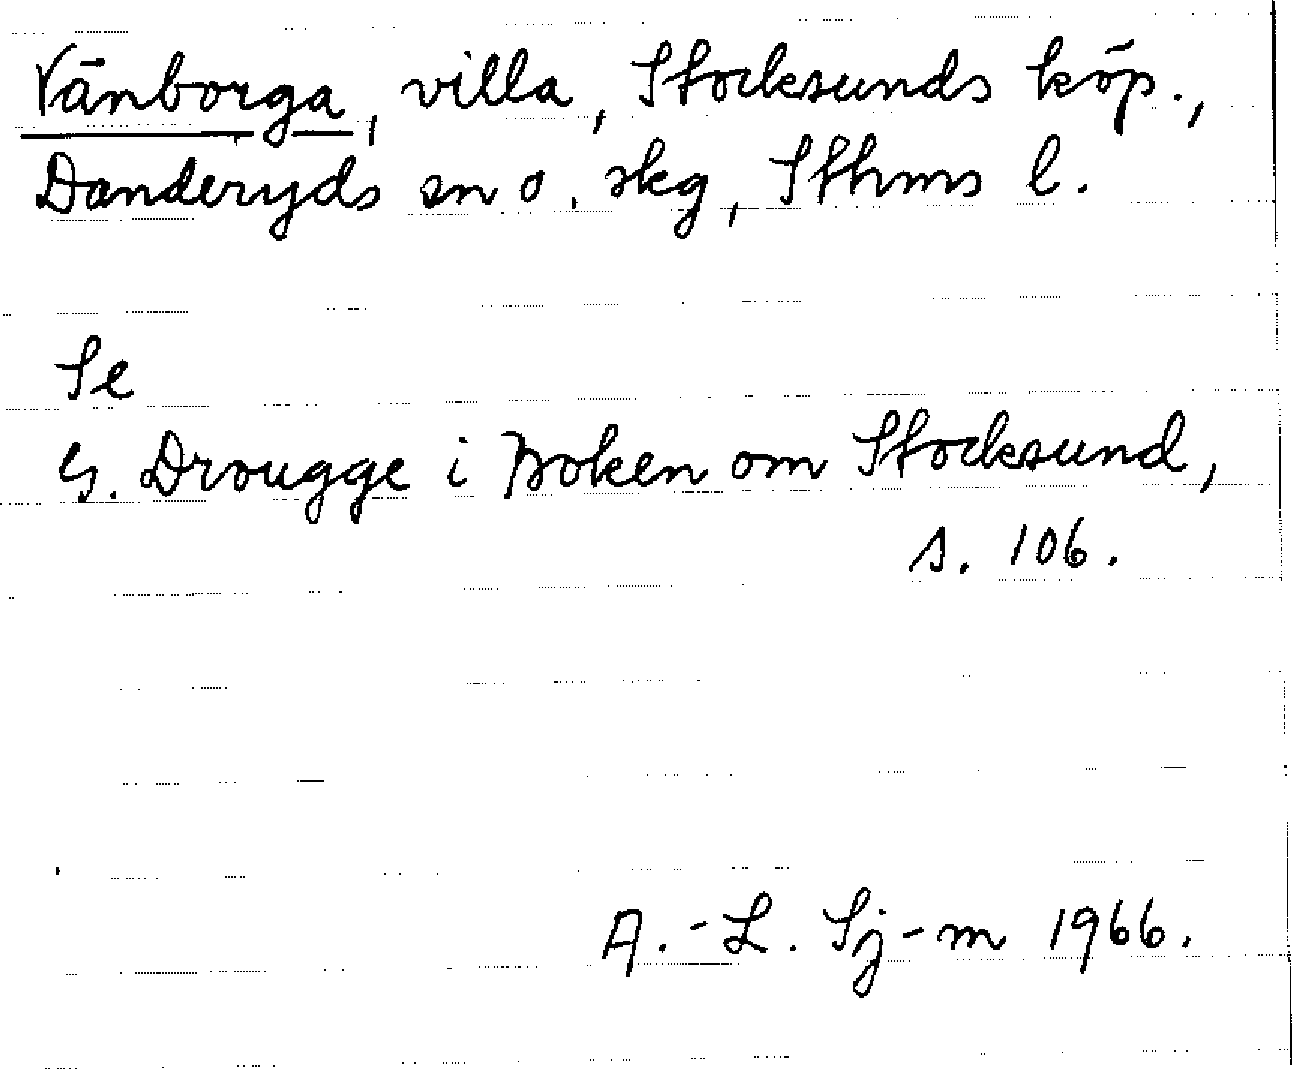 Vänborga, villa, Stocksunds köp.,
Danderyds sn o. skg, Sthms l.
Se
G. Drougge i Boken om Stocksund,
s. 106.
A.-L. Sj-m 1966.